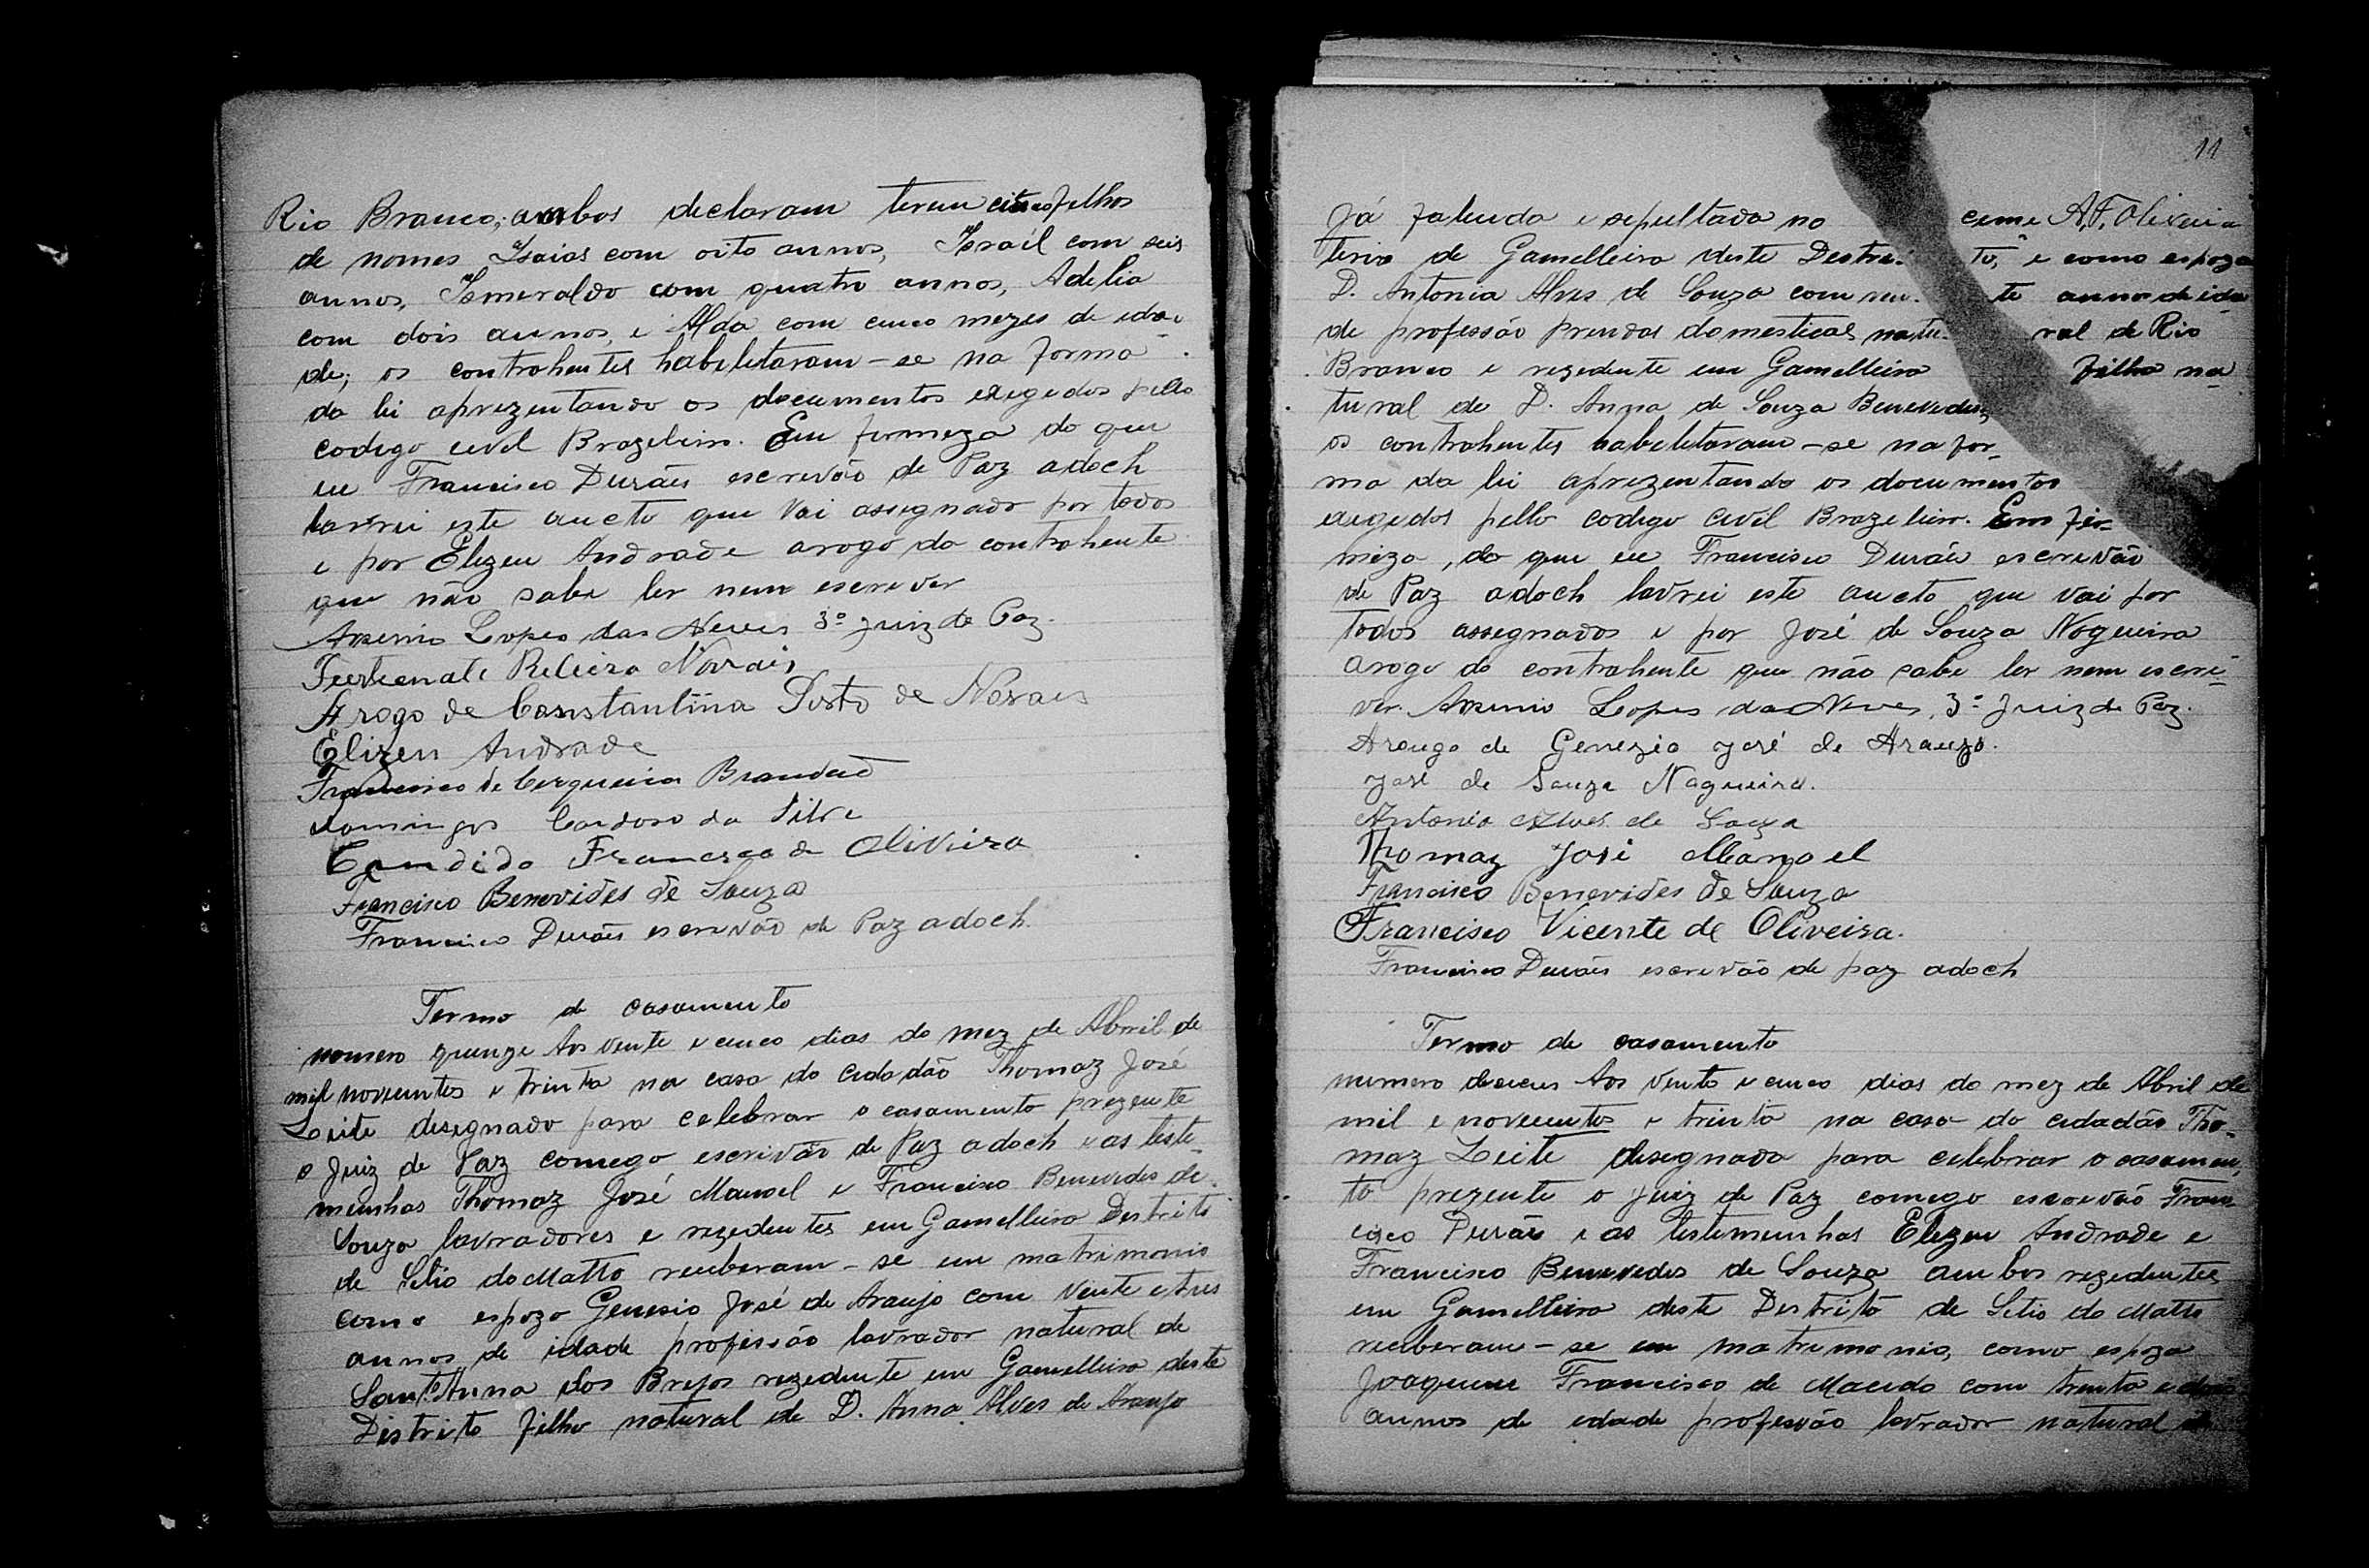 Rio Branco; ambos declaram terem cinco filhos
de nomes Isaias com oito annos, Israél com seis
annos, Ismeraldo com quatro annos, Adelia
com dois annos, e Alda com cinco mezes de ida-
de; os contrahentes habelitaram-se na forma
da lei aprezentando os documentos exegedos pello
codego civel Brazeleiro. Em firmeza do que
eu Francisco Durães escrevão de Paz adoch
lavrei este aucto que vai assegnado por todos
e por Elezeu Andrade arogo da contrahente
que não sabe ler nem escrever
Arsenio Lopes das Neves 3º Juiz de Paz.
Ribeiro Novais
Arogo de Constantina Porto de Novais
Elizeu Andrade
Francisco de Cerqueira Brandão
domingos Cardoso da Silva
Candido Francisco de Oliveira
Francisco Benevides de Souza
Francisco Durães escrevão de Paz adoch.
Termo de casamento
numero quenze Aos vente e cenco dias do mez de Abril de
mil novecentos e trinta na casa do cedadão Thomaz José
Leite desegnado para celebrar o casamento prezente
o Juiz de Paz comego escrivão de Paz adoch e as teste-
munhas Thomaz José Manoel e Francisco Benevedes de
Souza lavradores e rezedentes em Gamelleira Destrito
de Sitio do Matto receberam-se em matrimonio
como espozo Genesio José de Araujo com vente e tres
annos de idade profissão lavrador natural de
Sant'Anna dos Brejos rezedente em Gamelleira deste
Districto filho natural de D. Anna Alves de Araujo
11
Já falecida e sepultada no ceme A.F. Oliveira
terio de Gamelleira deste Destri- to, e como espoza
D. Antonia Alves de Souza com ven- te annos de ida
de professão prendas domesticas natu- ral de Rio
Branco e rezedente em Gamelleira filha na-
tural de D. Anna de Souza Benevedes,
os contrahentes habeletaram-se na for-
ma da lei aprezentando os documentos
exegedos pello codego civil Brazeleiro. Em fir-
meza, do que eu Francisco Durães escrevão
de Paz adoch lavrei este aucto que vai por
todos assegnados e por José de Souza Nogueira
arogo do contrahente que não sabe ler nem escre-
ver. Arsenio Lopes das Neves, 3º Juiz de Paz.
Arougo de Genezio José de Araujo.
José de Souza Nogueira.
Antonia Alves de Souza
Thomaz José Manoel
Francisco Benevides de Souza
Francisco Vicente de Oliveira.
Francisco Durães escrevão de paz adoch
Termo de casamento
numero deseceis Aos vente e cenco dias do mez de Abril de
mil e novecentos e trinta na casa do cedadão Tho-
maz Leite desegnada para celebrar o casamen-
to prezente o Juiz de Paz comego escrevão Fran-
cisco Durães e as testemunhas Elezeu Andrade e
Francisco Benevedes de Souza ambos rezedentes
em Gamelleira deste Destrito de Sitio do Matto
receberam-se em matremonio, como espozo
Joaquim Francisco de Macedo com trinta e dois
annos de edade professão lavrador natural de